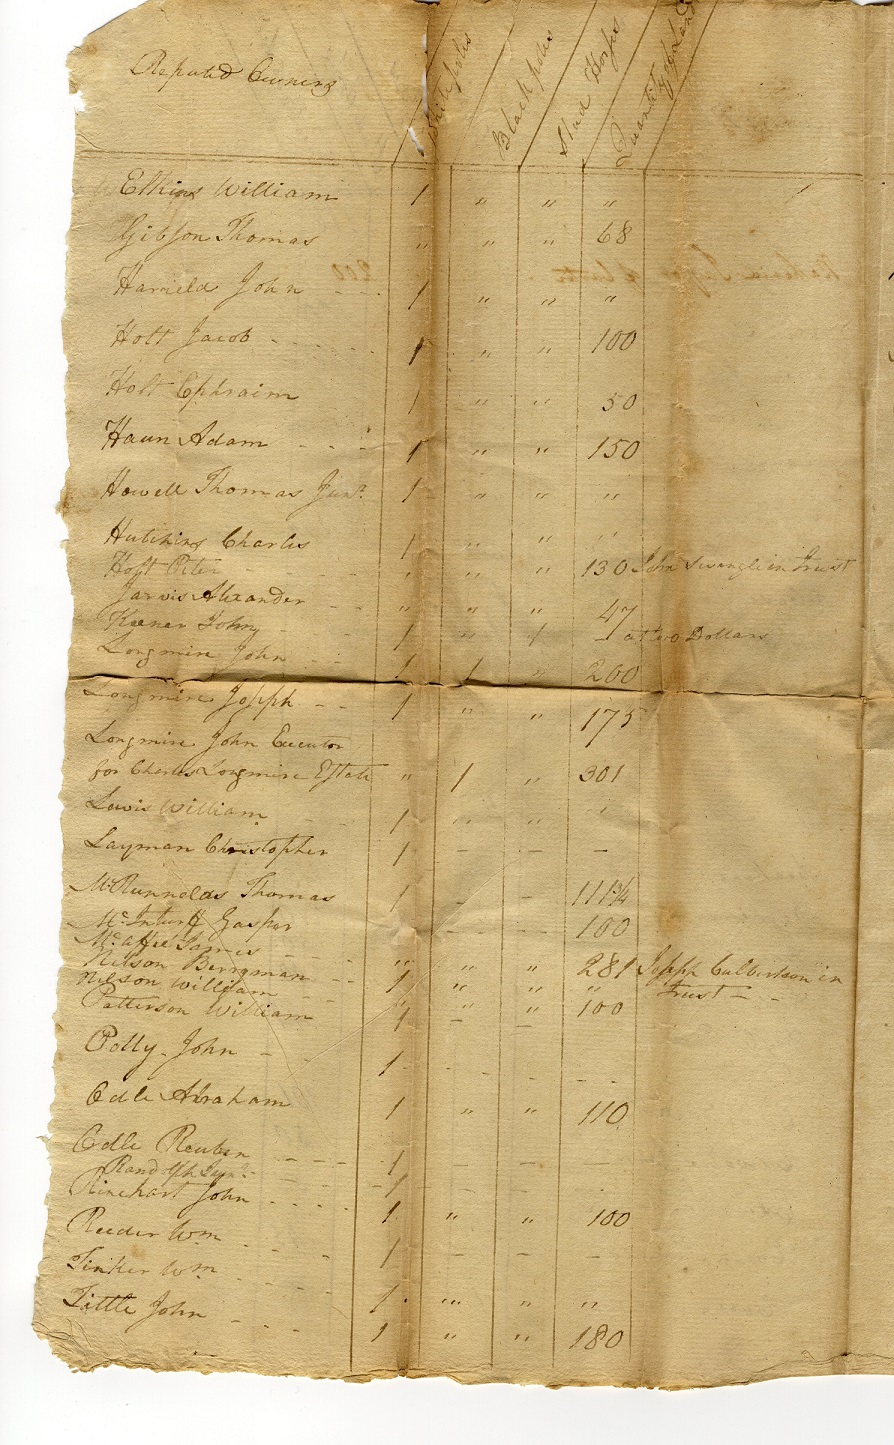 Reputed Owners White poles Black poles Stud Horses Quantity of Land
Elkins William 1 " " "
Gibson Thomas " " " 68
Harreld John - - 1 " " "
Holt Jacob - - - - - 1 " " 100
Holt Ephraim 1 " " 50
Haun Adam - - 1 " " 150
Howell Thomas Junr 1 " " "
Hutchins Charles 1 " " "
Holt Peter - - - " " " 130 John Swangle in Trust
Jarvis Alexander - - " " " 47
Keener John - - - 1 " 1 - at two Dollars
Longmire John - - 1 1 " 200
Longmire Joseph - - 1 " " 175
Longmire John Executor
for Charles Longmire Estate " 1 " 301
Lewis William - - 1 " " "
Layman Christopher 1 - - -
McRunnolds Thomas 1 - - 111¾
McInturff Gasper - - - 100
McAffee James - - -
Nelson Berryman - - " " " 281 Joseph Culbertson in
Nelson William - - 1 " " " Trust - -
Patterson William 1 " " 100
Polly John - - 1 - - -
Odle Abraham 1 " " 110
Odle Reuben - - - 1 - - -
Randolph Junr - - 1 - - -
Rinehart John - - - 1 " " 100
Reeder Wm - - - 1 - - -
Tinker Wm - - - 1 " " "
Tittle John - - - 1 " " 180